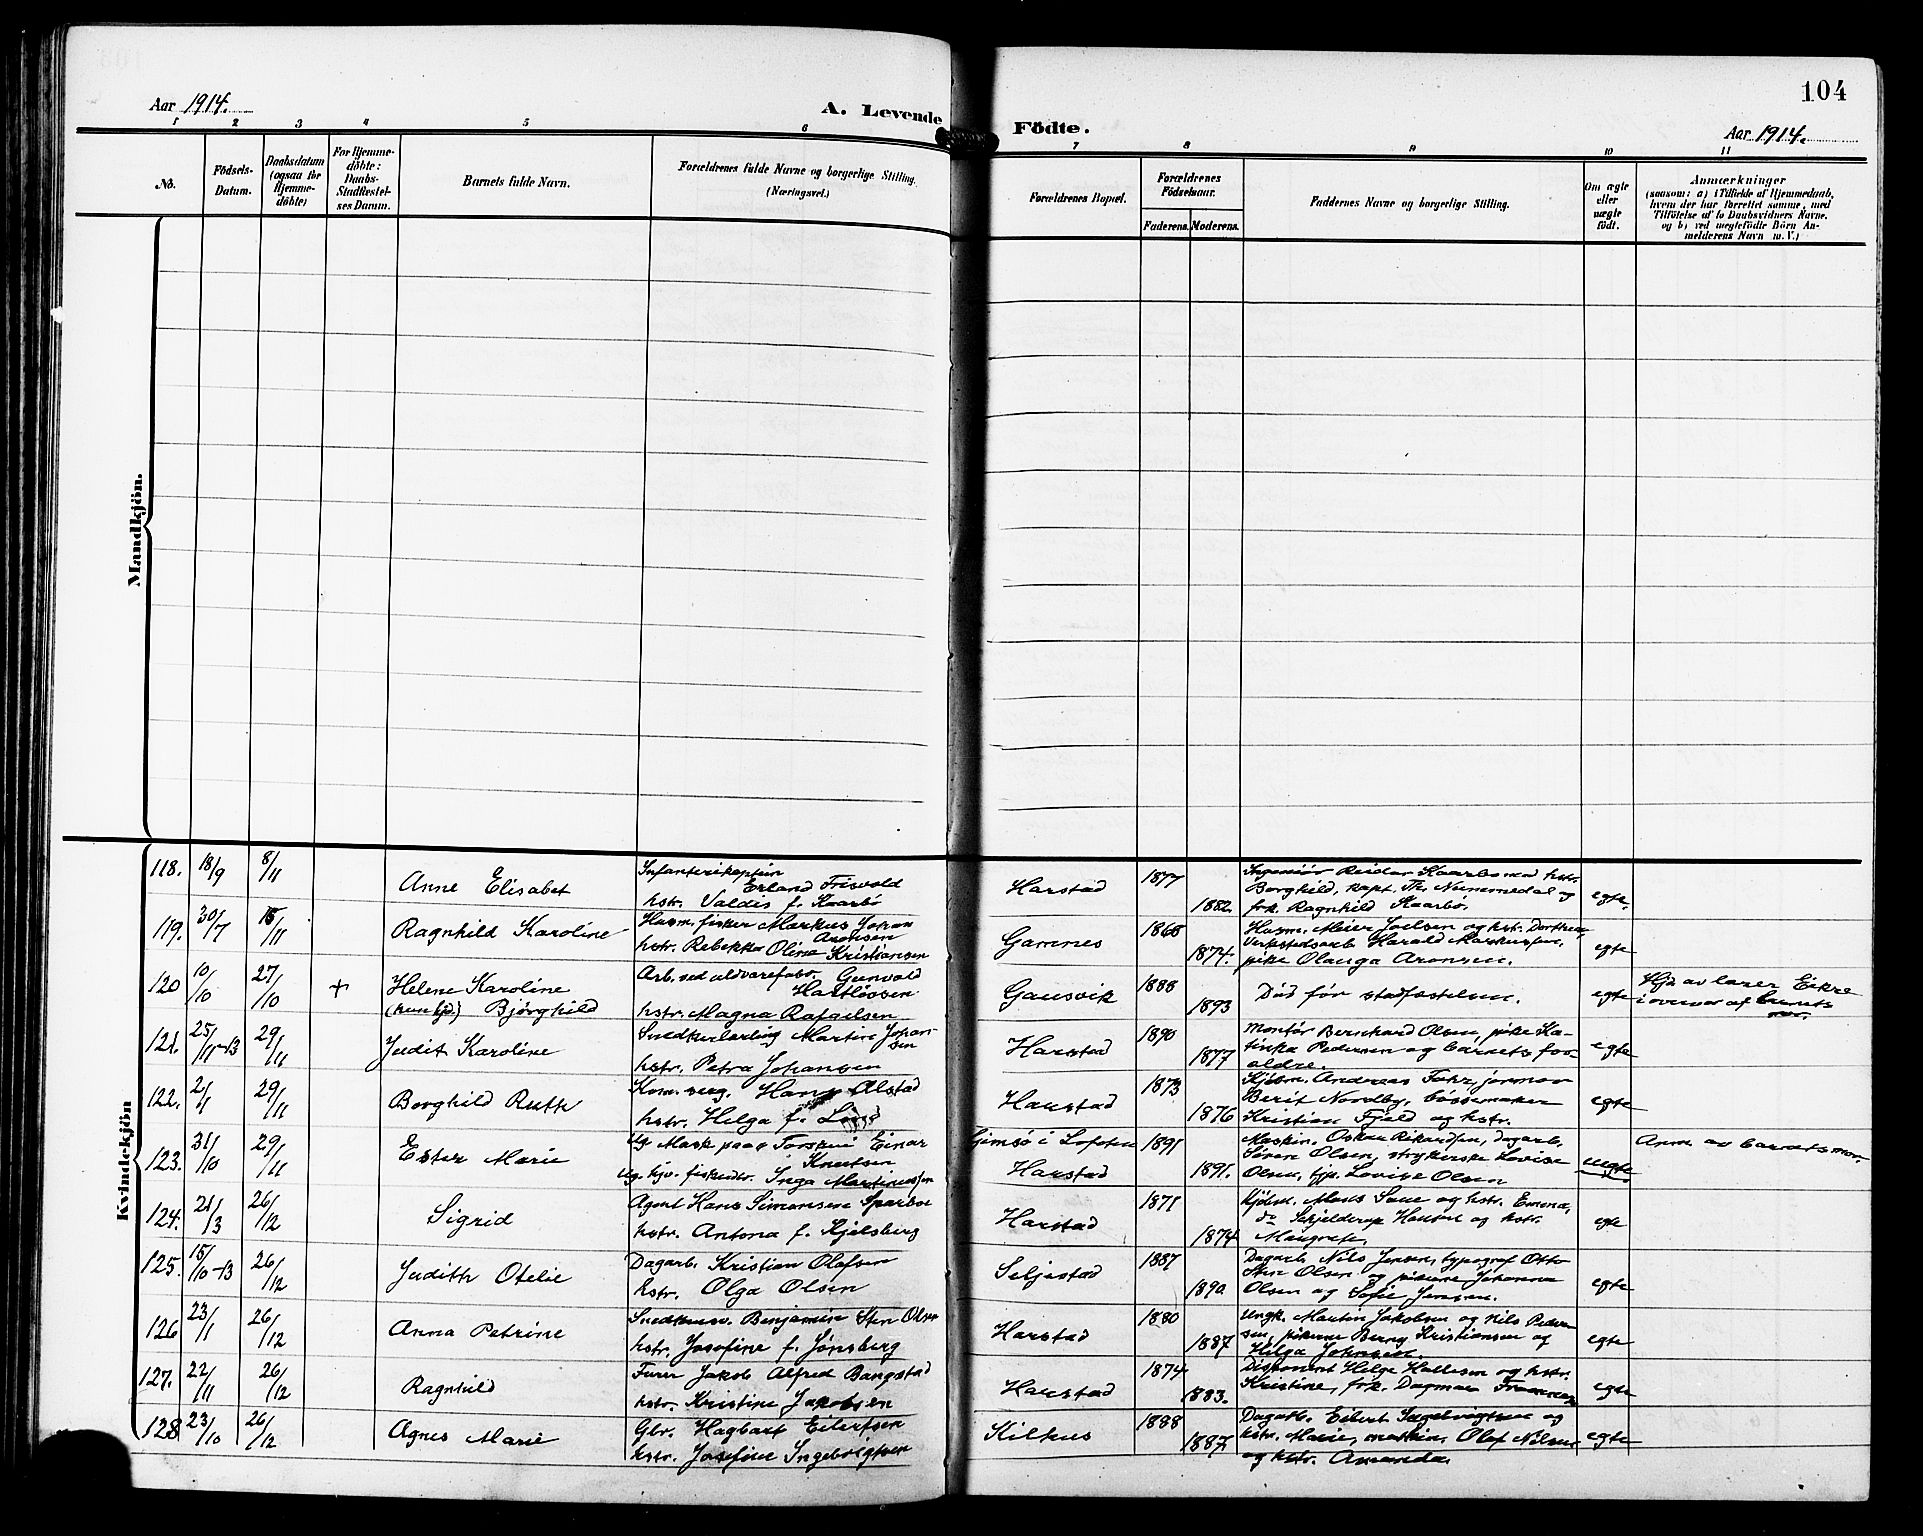 104
Aar 1914.
A. Levende
Födte.
Aar 1914.
1 2 3 4 5 6 7 8 9 10 11
No.
Födsels-
Datum.
Daabsdatum
(ogsaa for
Hjemme-
döbte)
For Hjemme-
döbte:
Daabs-
Stadfæstel-
ses Datum.
Barnets fulde Navn.
Forældrenes fulde Navne og borgerlige Stilling.
(Næringsvei.)
Forældrenes Bopæl.
Forældrenes
Födselsaar.
Faderens. Moderens.
Faddernes Navne og borgerlige Stilling.
Om ægte
eller
uægte
født.
Anmærkninger
(saasom: a) i Tilfælde af Hjemmedaab,
hvem der har forrettet samme, med
Tilföielse af to Daabsvidners Navne.
og b) ved uægtefödte Börn An-
melderens Navn m. V.)
Mandkjön.
Kvindekjön
118. 18/9 8/11 Anne Elisabet
Infanterikaptein
Erland Frisvold
hstr. Valdis f. Kaarbø
Harstad 1877 1882.
Ingeniør Reidar Kaarbø med hstr.
Borghild, kapt. Th. Nummedal og
frk. Ragnhild Kaarbø.
egte.
119. 30/7 15/11 Ragnhild Karoline
Husm. fisker Markus Johan
Aronsen
hstr. Rebekka Oline Kristiansen
Gamnes 1868 1874.
Husm. Meier Joelsen og hstr. Dorthea,
verkstedsarb Harald Markussen,
pike Olauga Aronsen.
egte
120 10/10 27/10 + Helene Karoline
(hun hjd.) Bjørghild
Arb. ved uldvarefabr. Gunvald
hstr. Magna Rafaelsen
Gausvik 1888 1893
Död før stadfæstelsen.
egte
Hjd av lærer Eikre
i overvær af barnets
mor.
121. 25/11-13 29/11 Judit Karoline
Snedkerlærling Martin Johan-
sen
hstr. Petra Johansen
Harstad 1890 1877
Montør Bernhard Olsen, pike Ka-
tinka Pedersen og barnets for-
ældre.
egte
122. 2/1 29/11 Borghild Ruth
Hans Olstad
hstr. Helga f. Lind
Harstad 1873 1876
Kjøbm. Andreas Fahr, jormor
Berit Nordby, bøssemaker
Kristian Fjeld og hstr.
egte
123. 31/10 29/11 Ester Marie
Einar
Knutsen
Inga Martinussen
Gimsø i Lofoten
Harstad 1891 1891.
Maskin. Oskar Rikardsen, dagarb.
Søren Olsen, strykerske Lovise
Olsen, tjp. Lovise Olsen
uegte
Anm. av barnets mor.
124. 21/3 26/12 Sigrid
Agent Hans Simonsen Sparboe
hstr. Antona f. Kjelsberg
Harstad 1871 1874
Kjøbm. Mons Saue og hstr. Emma,
do Schjelderup Hansen og hstr.
Margrete.
egte
125. 15/10-13 26/12 Judith Otelie
Dagarb. Kristian Olafsen
hstr. Olga Olsen
Seljestad 1887 1890.
Dagarb. Nils Jensen, typograf Otto
Sten Olsen og pikerne Johanna
Olsen og Sofie Jensen.
egte
126 23/1 26/12 Anna Petrine
Snedkersv. Benjamin Sten Olsen
hstr. Josefine f. Jønsberg
Harstad 1880 1887
Ungk. Martin Jakobsen og Nils Peder-
sen, pikerne Berny Kristiansen og
Helga Johnsen.
egte
127. 22/11 26/12 Ragnhild
Furer Jakob Alfred Bangstad
hstr. Kristine Jakobsen
Harstad 1874 1883.
Disponent Helge Hallesen og hstr.
Kristine, frk. Dagmar
egte
128 23/10 26/12 Agnes Marie
Gbr. Hagbart Eilertsen
hstr. Josefine Ingebrigtsen
Kilhus 1888 1887.
Dagarb. Eilert Ingebrigtsen og
hstr. Marie, maskin. Olaf Nilsen
og hstr. Amanda.
egte